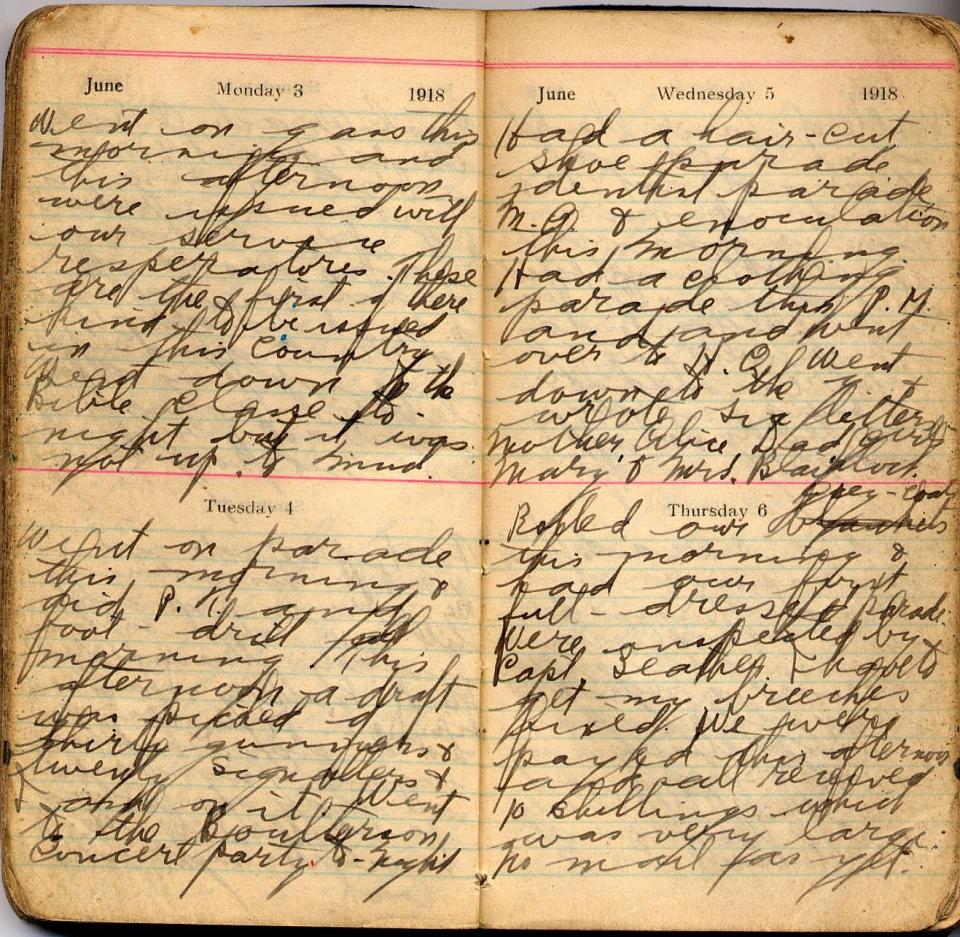 June Monday 3 1918
Went on gass this
morning and
this afternoon
were issued with
our service
resperatores. These
are the first of there
kind to be issued
in this country
Went down to the
Bible Classe to
night but it was
not up to much.
Tuesday 4
Went on parade
this morning &
did P. T. and
foot-drill all
morning This
afternoon a draft
was picked of
thirty gunners &
twenty signallers &
I am on it Went
to the
Concert party to-night
June Wednesday 5 1918
Had a hair-cut
shoe parade
dental parade
M.O. & enoculation
this morning.
Had a clothing
parade this P.M.
and went
over to Went
down to the Y &
wrote six letters
Mother Alice Dad girls
Mary & Mrs. Blaylock.
Thursday 6
grey-coats
Rolled our blankets
this morning &
had our first
full-dress parade.
Were inspected by
Capt. I have to
get my breeches
fixed. We were
payed this afternoon
and all received
10 shillings which
was very large.
No mail as yet.